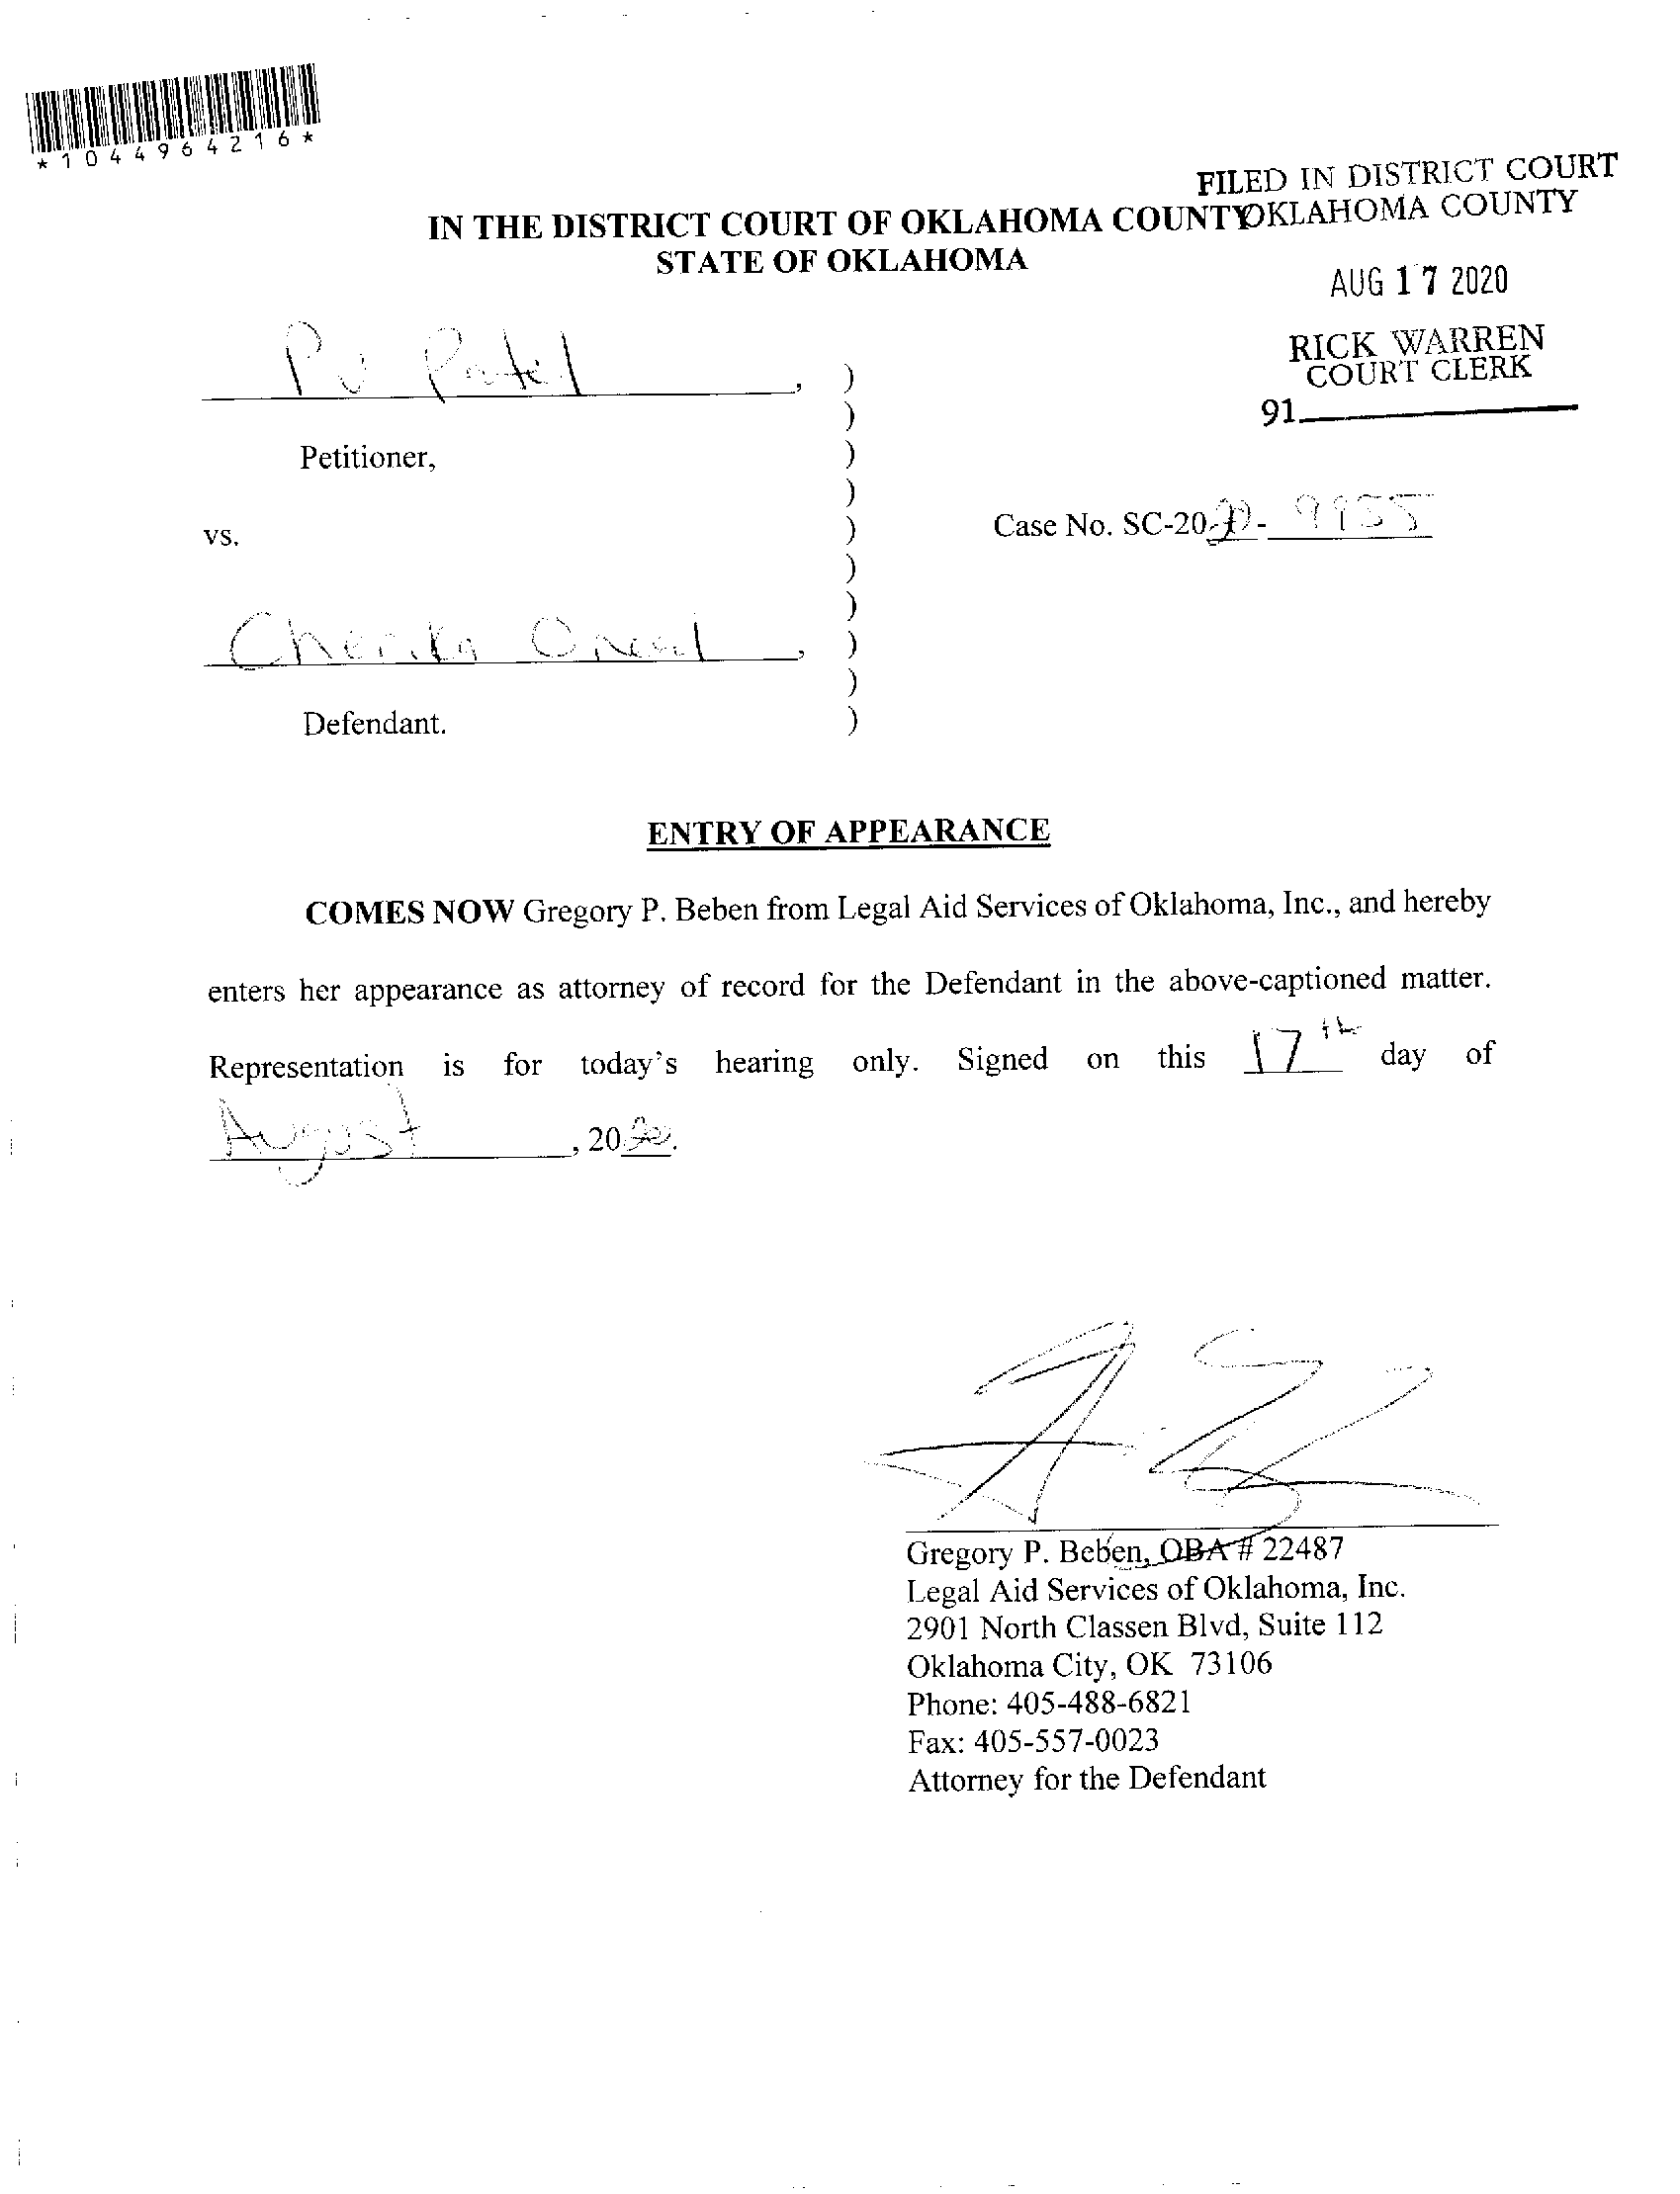 *1044964216*
FILED IN DISTRICT COURT
OKLAHOMA COUNTY
IN THE DISTRICT COURT OF OKLAHOMA COUNTY
STATE OF OKLAHOMA
AUG 17 2020
RICK WARREN
COURT CLERK
91
PV Patel, )
)
Petitioner, )
)
vs. ) Case No. SC-2020-9955
)
)
Cherika Oneal, )
)
Defendant. )
ENTRY OF APPEARANCE
COMES NOW Gregory P. Beben from Legal Aid Services of Oklahoma, Inc., and hereby
enters her appearance as attorney of record for the Defendant in the above-captioned matter.
Representation is for today's hearing only. Signed on this 17th day of
August, 2020.
Gregory P. Beben, OBA # 22487
Legal Aid Services of Oklahoma, Inc.
2901 North Classen Blvd, Suite 112
Oklahoma City, OK 73106
Phone: 405-488-6821
Fax: 405-557-0023
Attorney for the Defendant